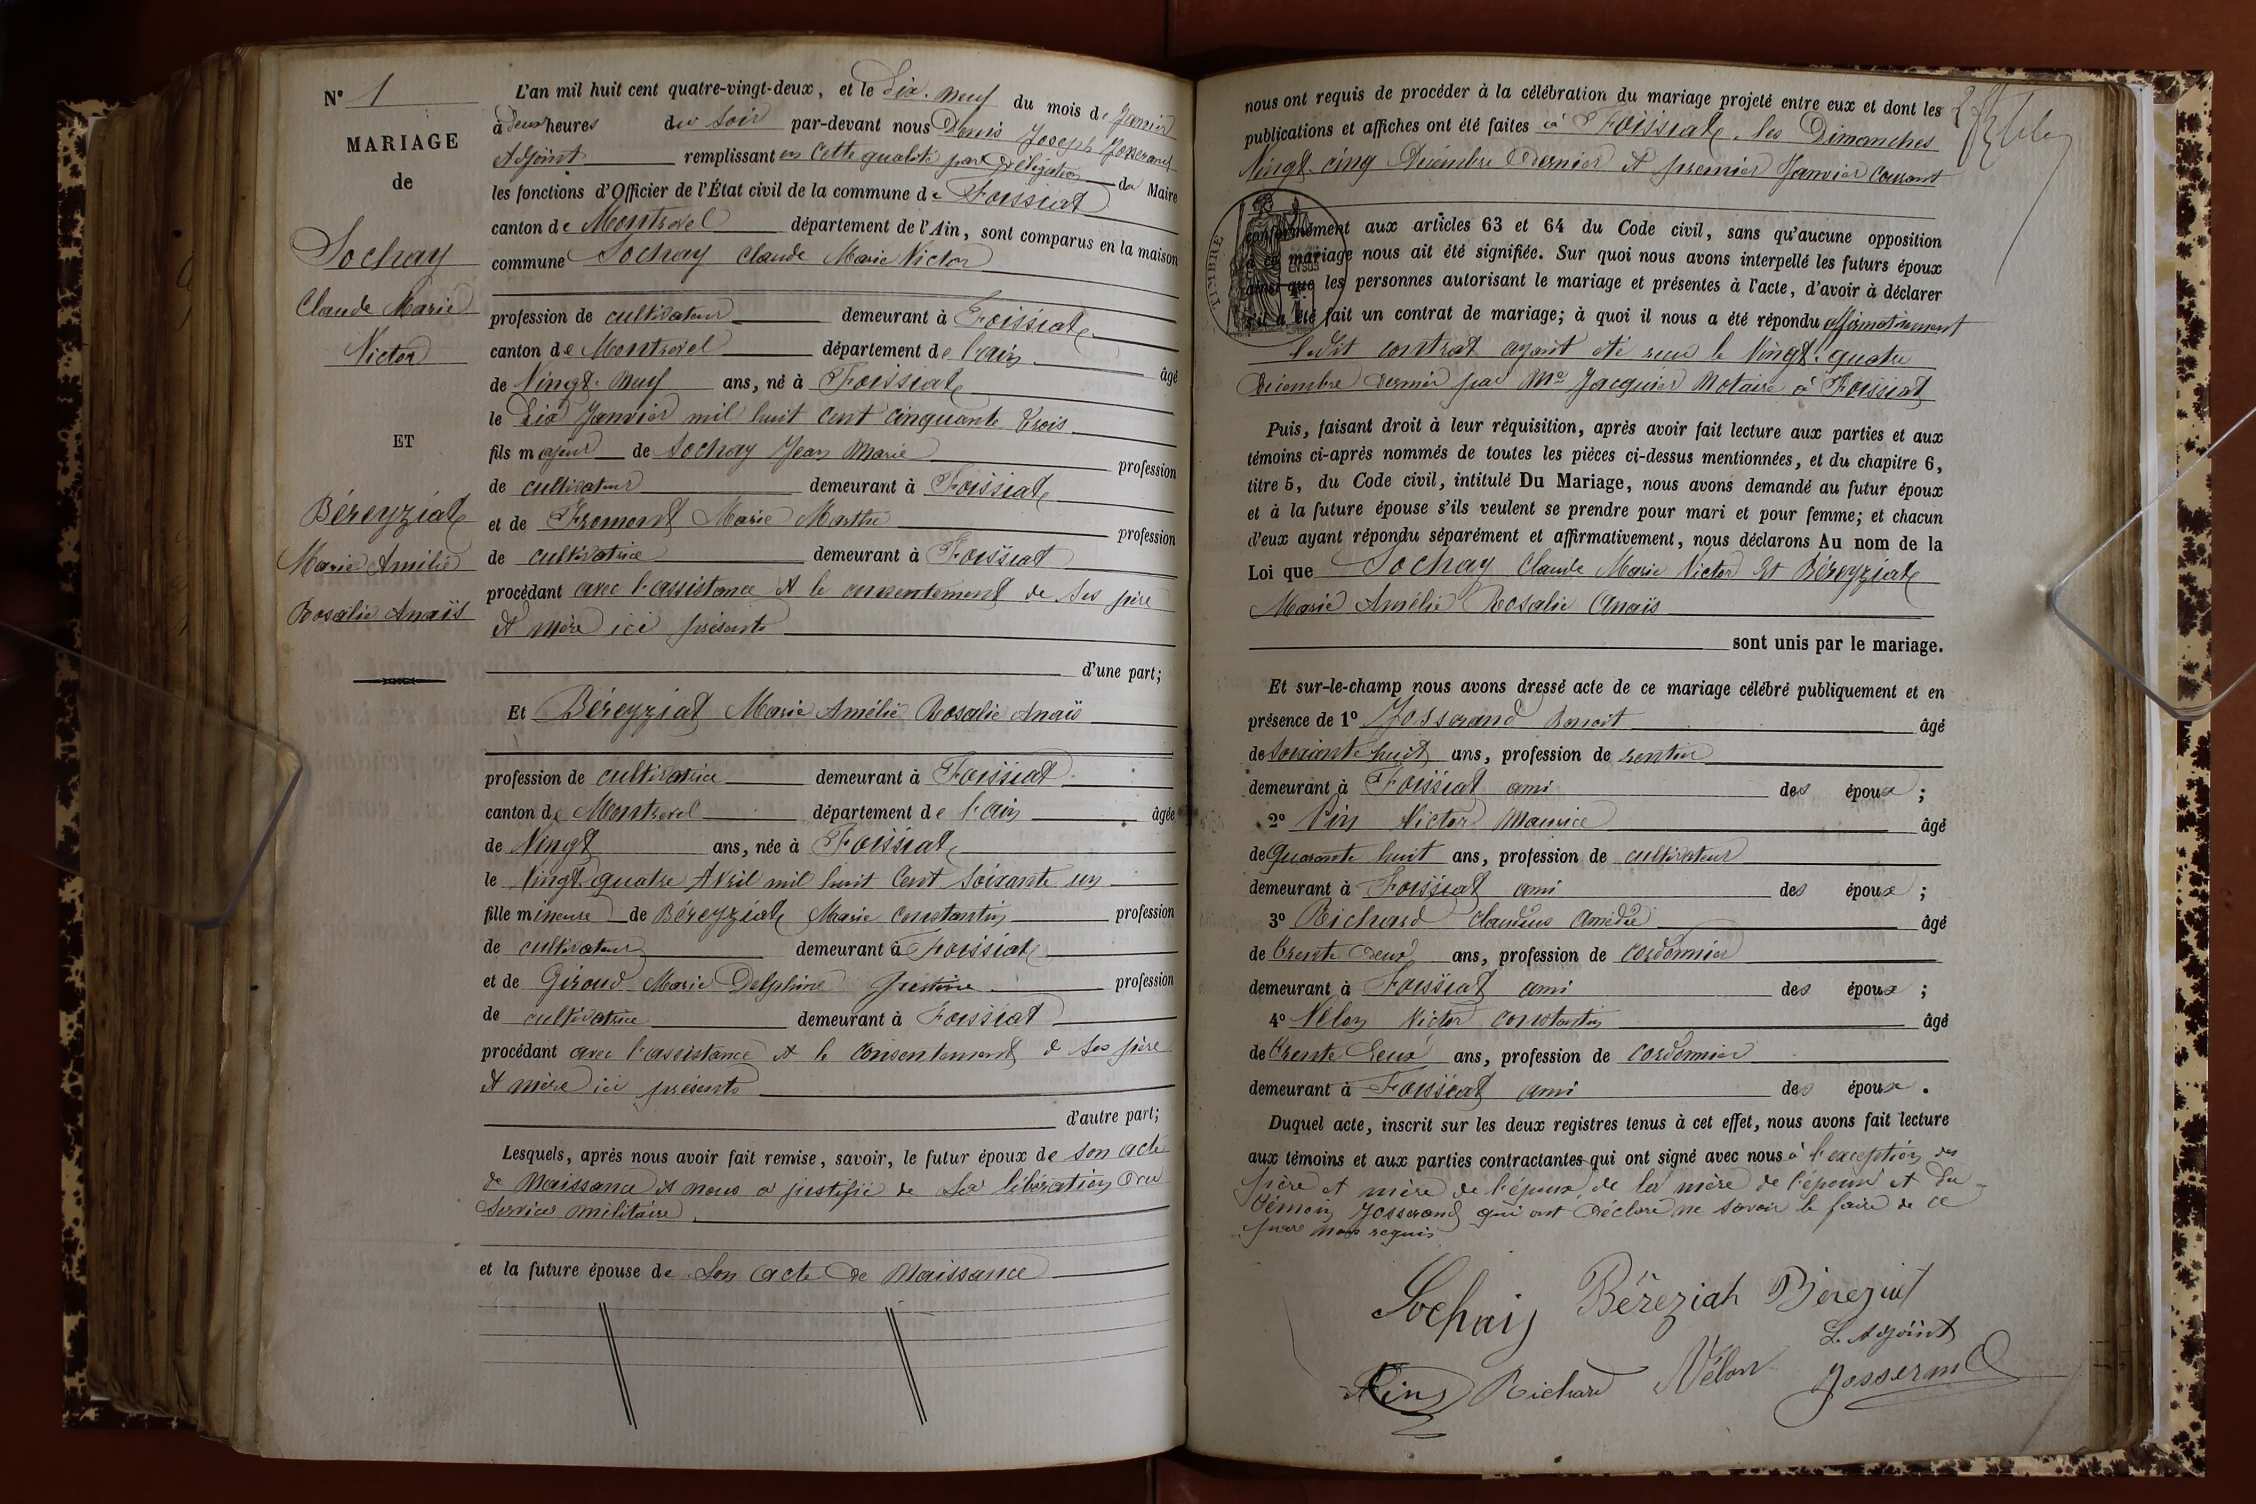 N° 1
MARIAGE
de
Sochay
Claude Marie
Victor
ET
Béreyziat
Marie Amélie
Rosalie Anaïs
L'an mil huit cent quatre-vingt-deux, et le Dix-neuf du mois de Janvier
à deux heures du soir par-devant nous Denis Joseph Josserand
Adjoint remplissant en cette qualité par délégation du Maire
les fonctions d'Officier de l'État civil de la commune de Foissiat
canton de Montrevel département de l'Ain, sont comparus en la maison
commune Sochay Claude Marie Victor
profession de cultivateur demeurant à Foissiat
canton de Montrevel département de l'ain âgé
de Vingt-neuf ans, né à Foissiat
le Dix Janvier mil huit cent cinquante trois
fils majeur de Sochay Jean Marie profession
de cultivateur demeurant à Foissiat
et de Fromont Marie Marthe profession
de cultivatrice demeurant à Foissiat
procédant avec l'assistance et le consentement de ses père
et mère ici présents
d'une part;
Et Béreyziat Marie Amélie Rosalie Anaïs
profession de cultivatrice demeurant à Foissiat
canton de Montrevel département de l'ain âgée
de Vingt ans, née à Foissiat
le Vingt quatre Avril mil huit cent soixante un
fille mineure de Béreyziat Marie Constantin profession
de cultivateur demeurant à Foissiat
et de Giroud Marie Delphine Justine profession
de cultivatrice demeurant à Foissiat
procédant avec l'assistance et le consentement de ses père
et mère ici présents
d'autre part;
Lesquels, après nous avoir fait remise, savoir, le futur époux de son acte
de Naissance et nous a justifié de sa libération du
service militaire
et la future épouse de son acte de Naissance
nous ont requis de procéder à la célébration du mariage projeté entre eux et dont les
publications et affiches ont été faites à Foissiat les Dimanches
Vingt-cinq Décembre dernier et premier Janvier courant
TIMBRE
conformément aux articles 63 et 64 du Code civil, sans qu'aucune opposition
à ce mariage nous ait été signifiée. Sur quoi nous avons interpellé les futurs époux
ainsi que les personnes autorisant le mariage et présentes à l'acte, d'avoir à déclarer
s'il a été fait un contrat de mariage; à quoi il nous a été répondu affirmativement
ledit contrat ayant été reçu le Vingt-quatre
Décembre dernier par Me Jacquier Notaire à Foissiat
Puis, faisant droit à leur réquisition, après avoir fait lecture aux parties et aux
témoins ci-après nommés de toutes les pièces ci-dessus mentionnées, et du chapitre 6,
titre 5, du Code civil, intitulé Du Mariage, nous avons demandé au futur époux
et à la future épouse s'ils veulent se prendre pour mari et pour femme; et chacun
d'eux ayant répondu séparément et affirmativement, nous déclarons Au nom de la
Loi que Sochay Claude Marie Victor et Béreyziat
Marie Amélie Rosalie Anaïs
sont unis par le mariage.
Et sur-le-champ nous avons dressé acte de ce mariage célébré publiquement et en
présence de 1° Josserand Benoit âgé
de soixante huit ans, profession de rentier
demeurant à Foissiat ami des époux ;
2° Pin Victor Maurice âgé
de quarante huit ans, profession de cultivateur
demeurant à Foissiat ami des époux ;
3° Richard Claudius Amédée âgé
de Trente deux ans, profession de cordonnier
demeurant à Foissiat ami des époux ;
4° Vélon Victor Constantin âgé
de Trente deux ans, profession de cordonnier
demeurant à Foissiat ami des époux .
Duquel acte, inscrit sur les deux registres tenus à cet effet, nous avons fait lecture
aux témoins et aux parties contractantes qui ont signé avec nous à l'exception des
père et mère de l'époux, de la mère de l'épouse et du
témoin Josserand qui ont déclaré ne savoir le faire de ce
par nous requis
Sochay Béreziat Béreziat
L'Adjoint
Pin Richard Vélon Josserand